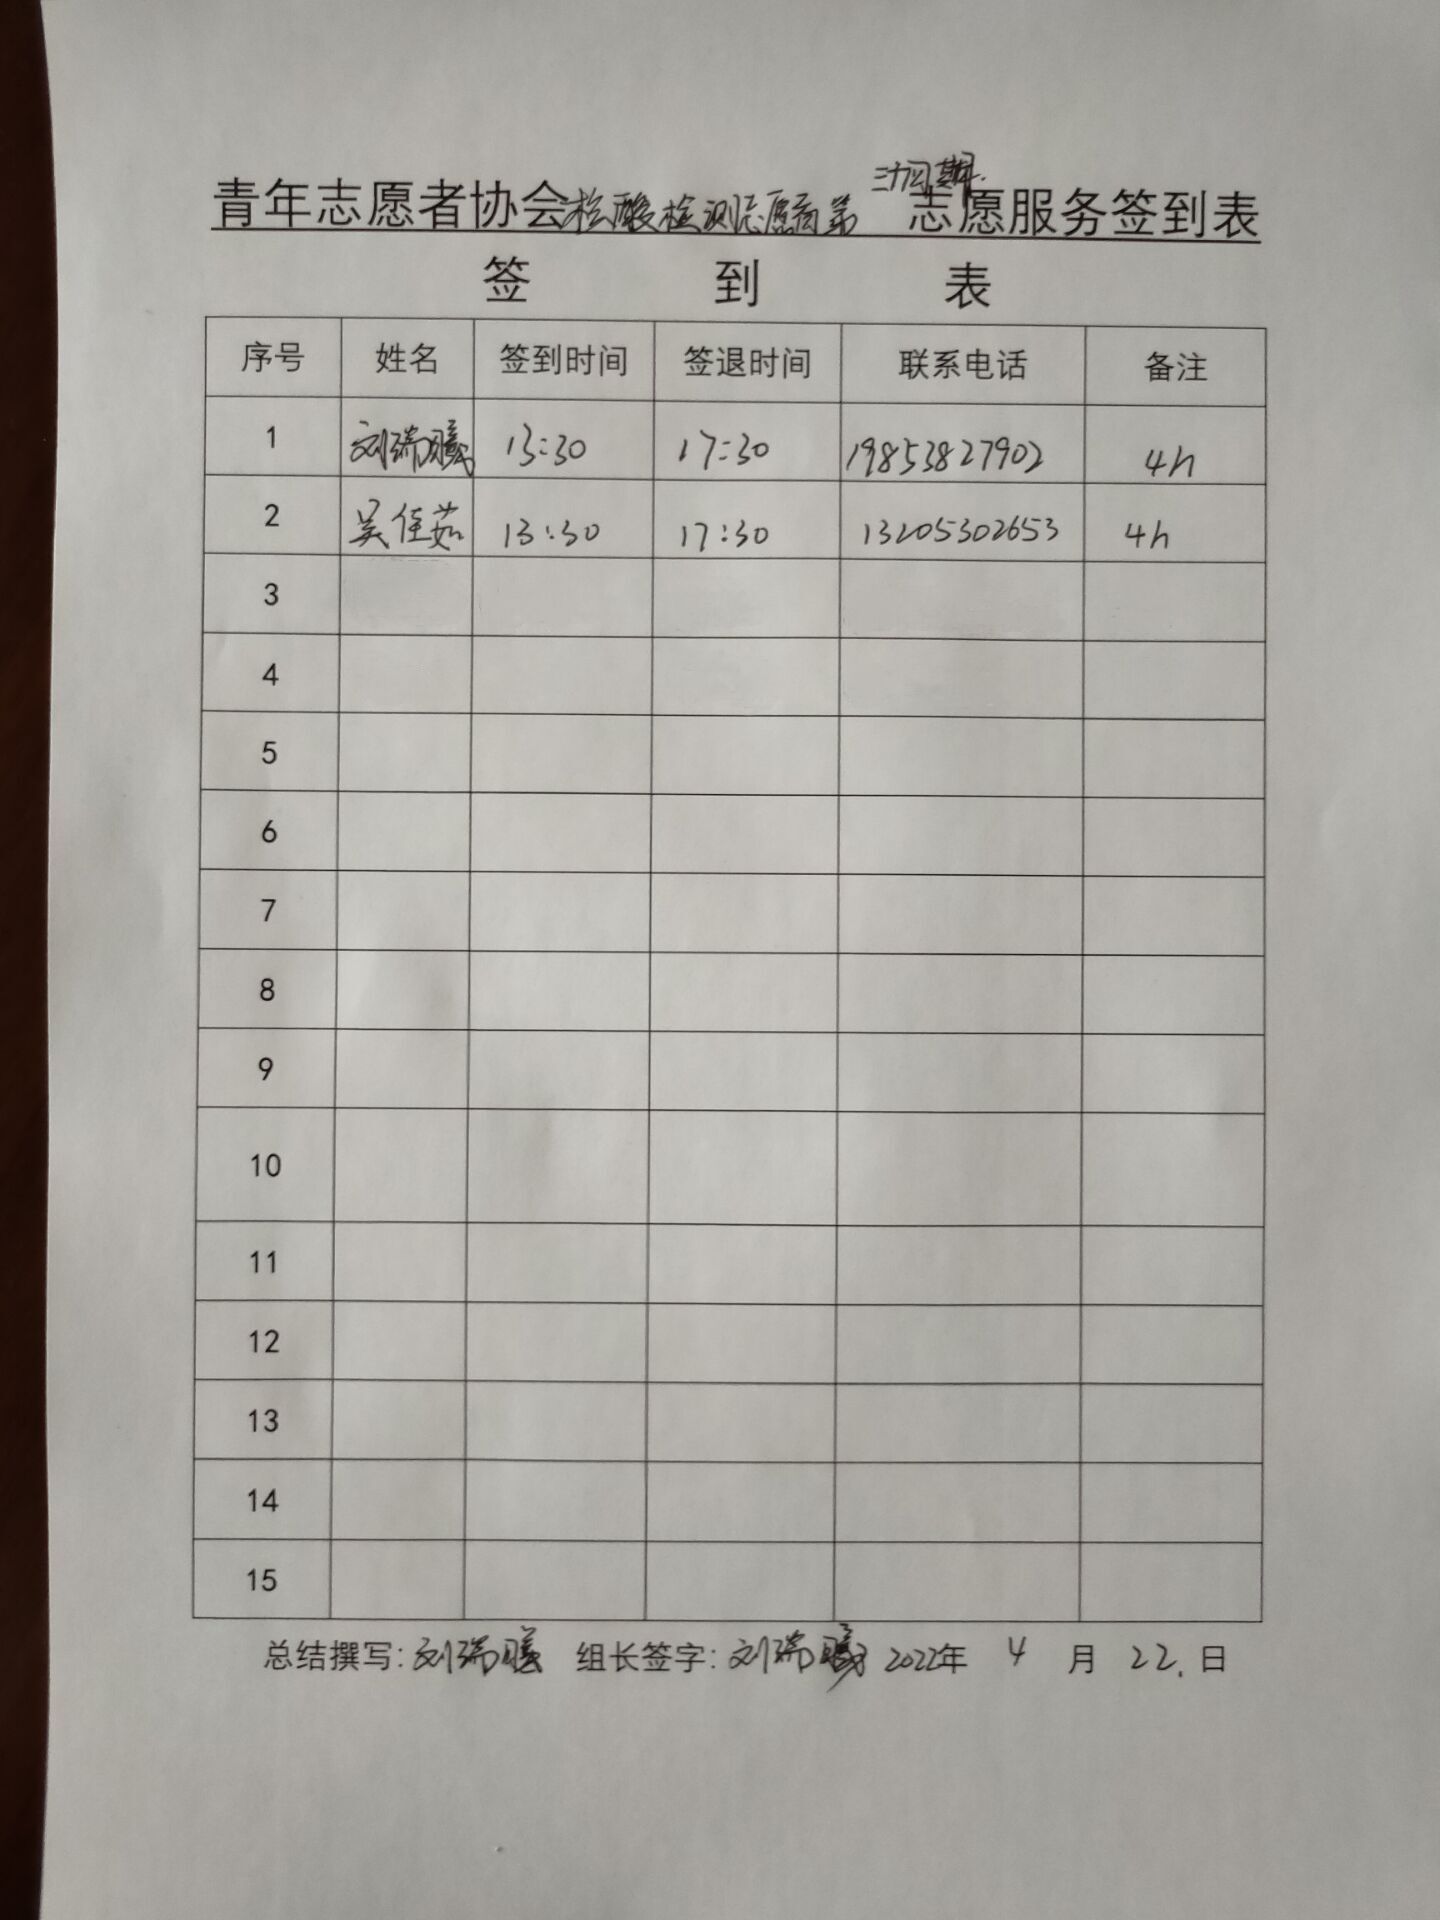 三十四期.
青年志愿者协会核酸检测志愿者第 志愿服务签到表
签 到 表
序号 姓名 签到时间 签退时间 联系电话 备注
1 刘瑞曦 13:30 17:30 19853827902 4h
2 吴佳茹 13:30 17:30 13205302653 4h
3
4
5
6
7
8
9
10
11
12
13
14
15
总结撰写:刘瑞曦 组长签字:刘瑞曦 2022年 4 月 22. 日